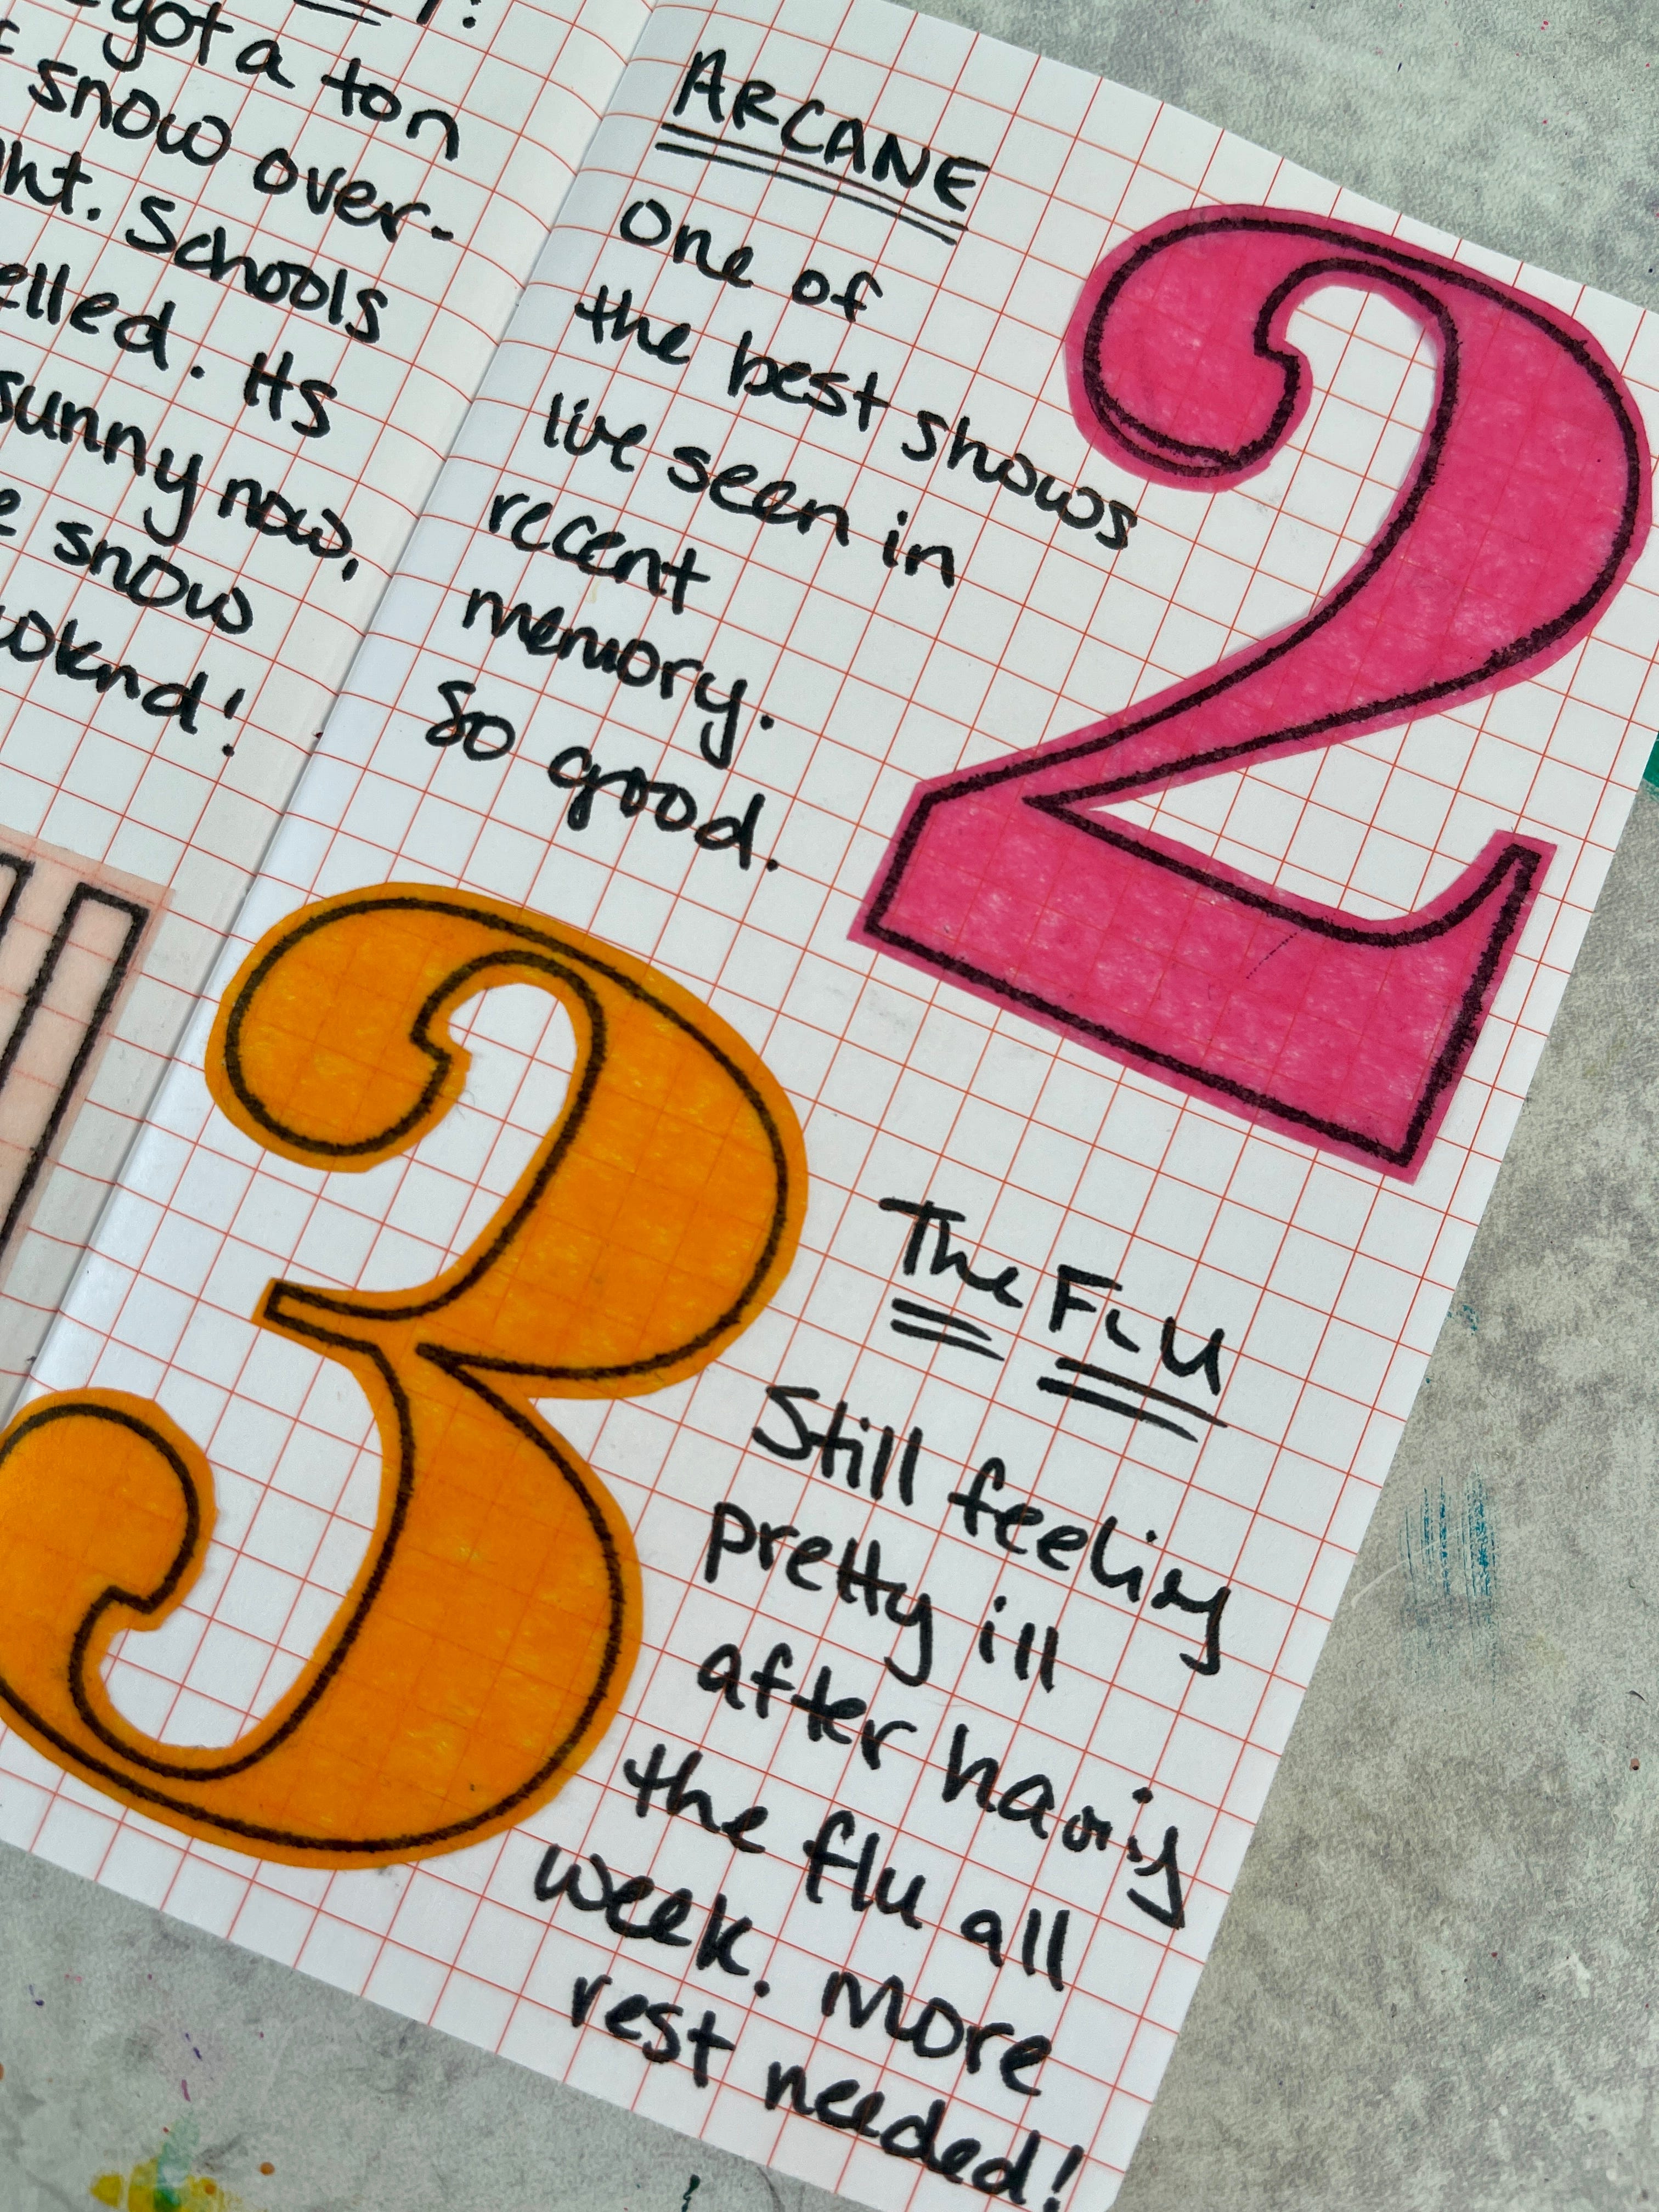 got a ton
snow over-
ht. Schools
elled. Its
sunny now,
snow
ARCANE
One of
the best shows
I've seen in
recent
memory.
So good.
2
3
The FLU
Still feeling
pretty ill
after having
the flu all
week. More
rest needed!